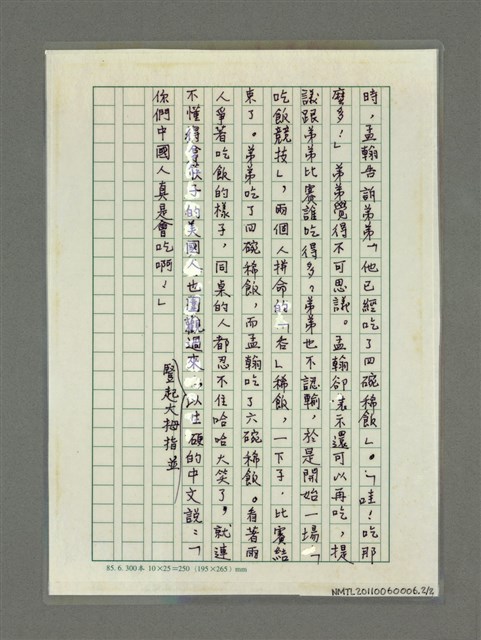 時，孟翰告訴弟弟「他已經吃了四碗稀飯」。「哇！吃那
麼多！」弟弟覺得不可思議。孟翰卻表示還可以再吃，提
議跟弟弟比賽誰吃得多？弟弟也不認輸，於是開始一場「
吃飯競技」，兩個人拼命的「吞」稀飯，一下子，比賽結
束了。弟弟吃了四碗稀飯，而孟翰吃了六碗稀飯。看著兩
人爭著吃飯的樣子，同桌的人都忍不住哈哈大笑了，就連
不懂得拿筷子的美國人也圍觀過來，以生硬的中文說：「
豎起大拇指並
你們中國人真是會吃啊！」
85. 6. 300本 10×25=250 (195×265) mm
NMTL20110060006.2/2